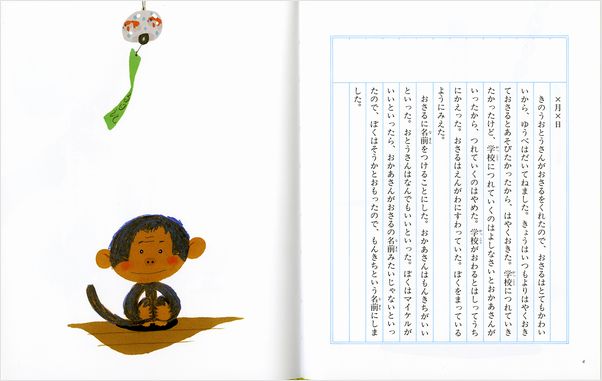 ×月×日
きのうおとうさんがおさるをくれたので、おさるはとてもかわい
いから、ゆうべはだいてねました。きょうはいつもよりはやくおき
ておさるとあそびたかったから、はやくおきた。学校につれていき
たかったけど、学校につれていくのはよしなさいとおかあさんが
いったから、つれていくのはやめた。学校がおわるとはしってうち
にかえった。おさるはえんがわにすわっていた。ぼくをまっている
ようにみえた。
おさるに名前をつけることにした。おかあさんはもんきちがいい
といった。おとうさんはなんでもいいといった。ぼくはマイケルが
いいといったら、おかあさんがおさるの名前みたいじゃないといっ
たので、ぼくはそうかとおもったので、もんきちという名前にしま
した。
4